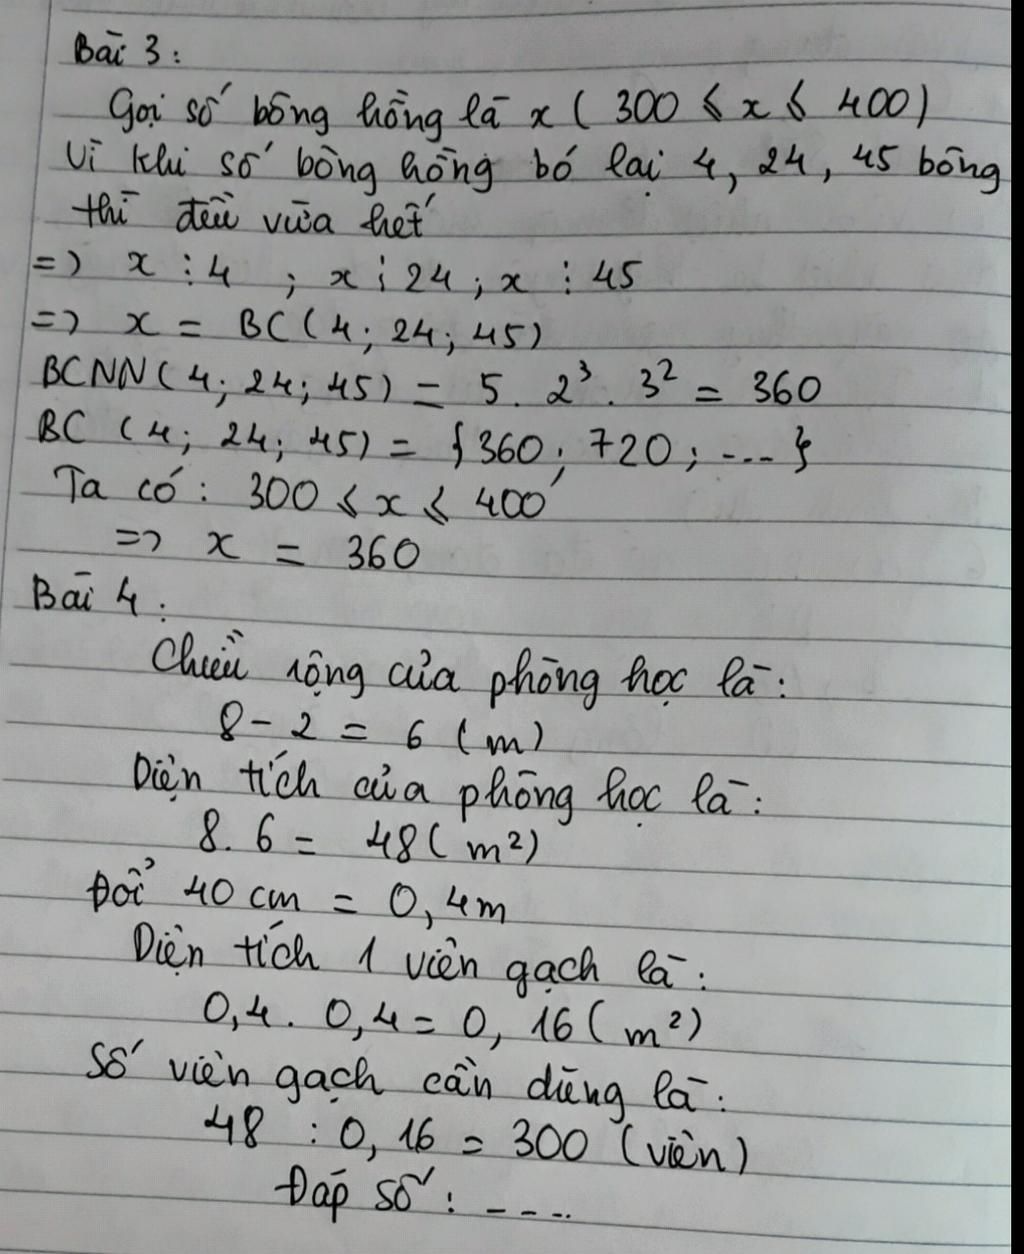 Bài 3:
Gọi số bông hồng là x ( 300 ≤ x ≤ 400)
Vì khi số bông hồng bó lại 4, 24, 45 bông
thì đều vừa hết
=> x ⋮ 4 ; x ⋮ 24 ; x ⋮ 45
=> x = BC ( 4; 24; 45)
BCNN ( 4; 24; 45) = 5. 2³. 3² = 360
BC ( 4; 24; 45) = { 360; 720; .... }
Ta có: 300 ≤ x ≤ 400
=> x = 360
Bài 4:
Chiều rộng của phòng học là:
8 - 2 = 6 (m)
Diện tích của phòng học là:
8. 6 = 48 ( m²)
Đổi 40 cm = 0,4m
Diện tích 1 viên gạch là:
0,4. 0,4 = 0, 16 ( m²)
Số viên gạch cần dùng là:
48 : 0, 16 = 300 (viên)
Đáp số: ....